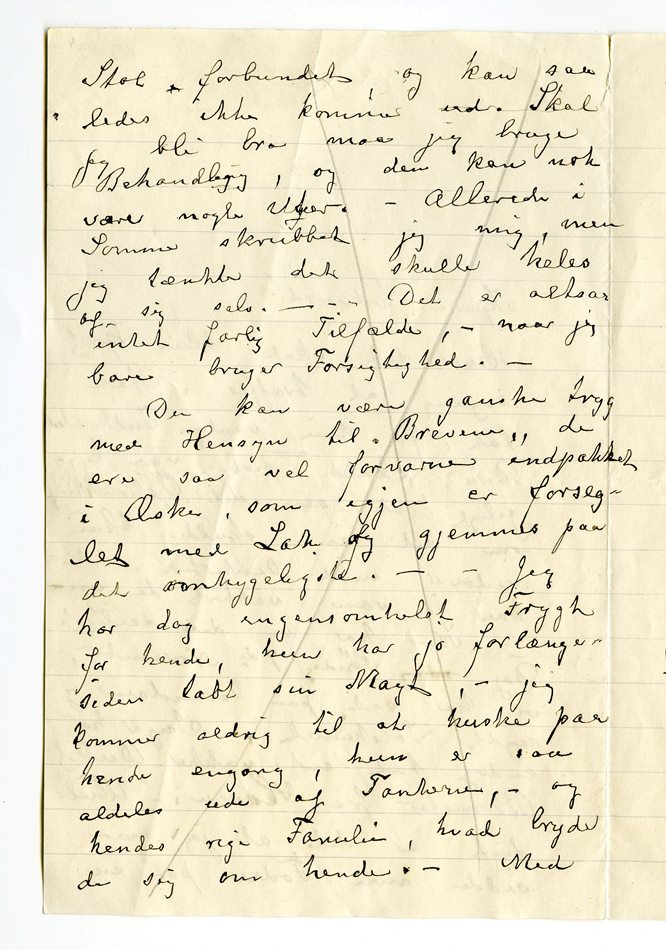 Stol, forbundet, og kan saa
ledes ikke komme ud. Skal
jeg bli bra maa jeg bruge
Behandling, og den kan nok
være nogle Uger. – Allerede i
Somme skrubbet jeg mig, men
jeg tænkte det skulle heles
af sig selv. — -- Det er altsaa
intet farlig Tilfælde, – naar jeg
bare bruger Forsigtighed. —
Du kan være ganske tryg
med Hensyn til "Brevene", de
ere saa vel forvarne indpakket
i Æsker, som igjen er forseg-
let med Lak og gjemmes paa
det omhyggeligste. — – Jeg
har dog ingensomhelst Frygt
for hende, hun har jo forlænge-
siden tabt sin Magt, – jeg
kommer aldrig til at huske paa
hende engang, hun er saa
aldeles ude af Tankerne, – og
hendes rige Familie, hvad bryde
de sig om hende. – Med